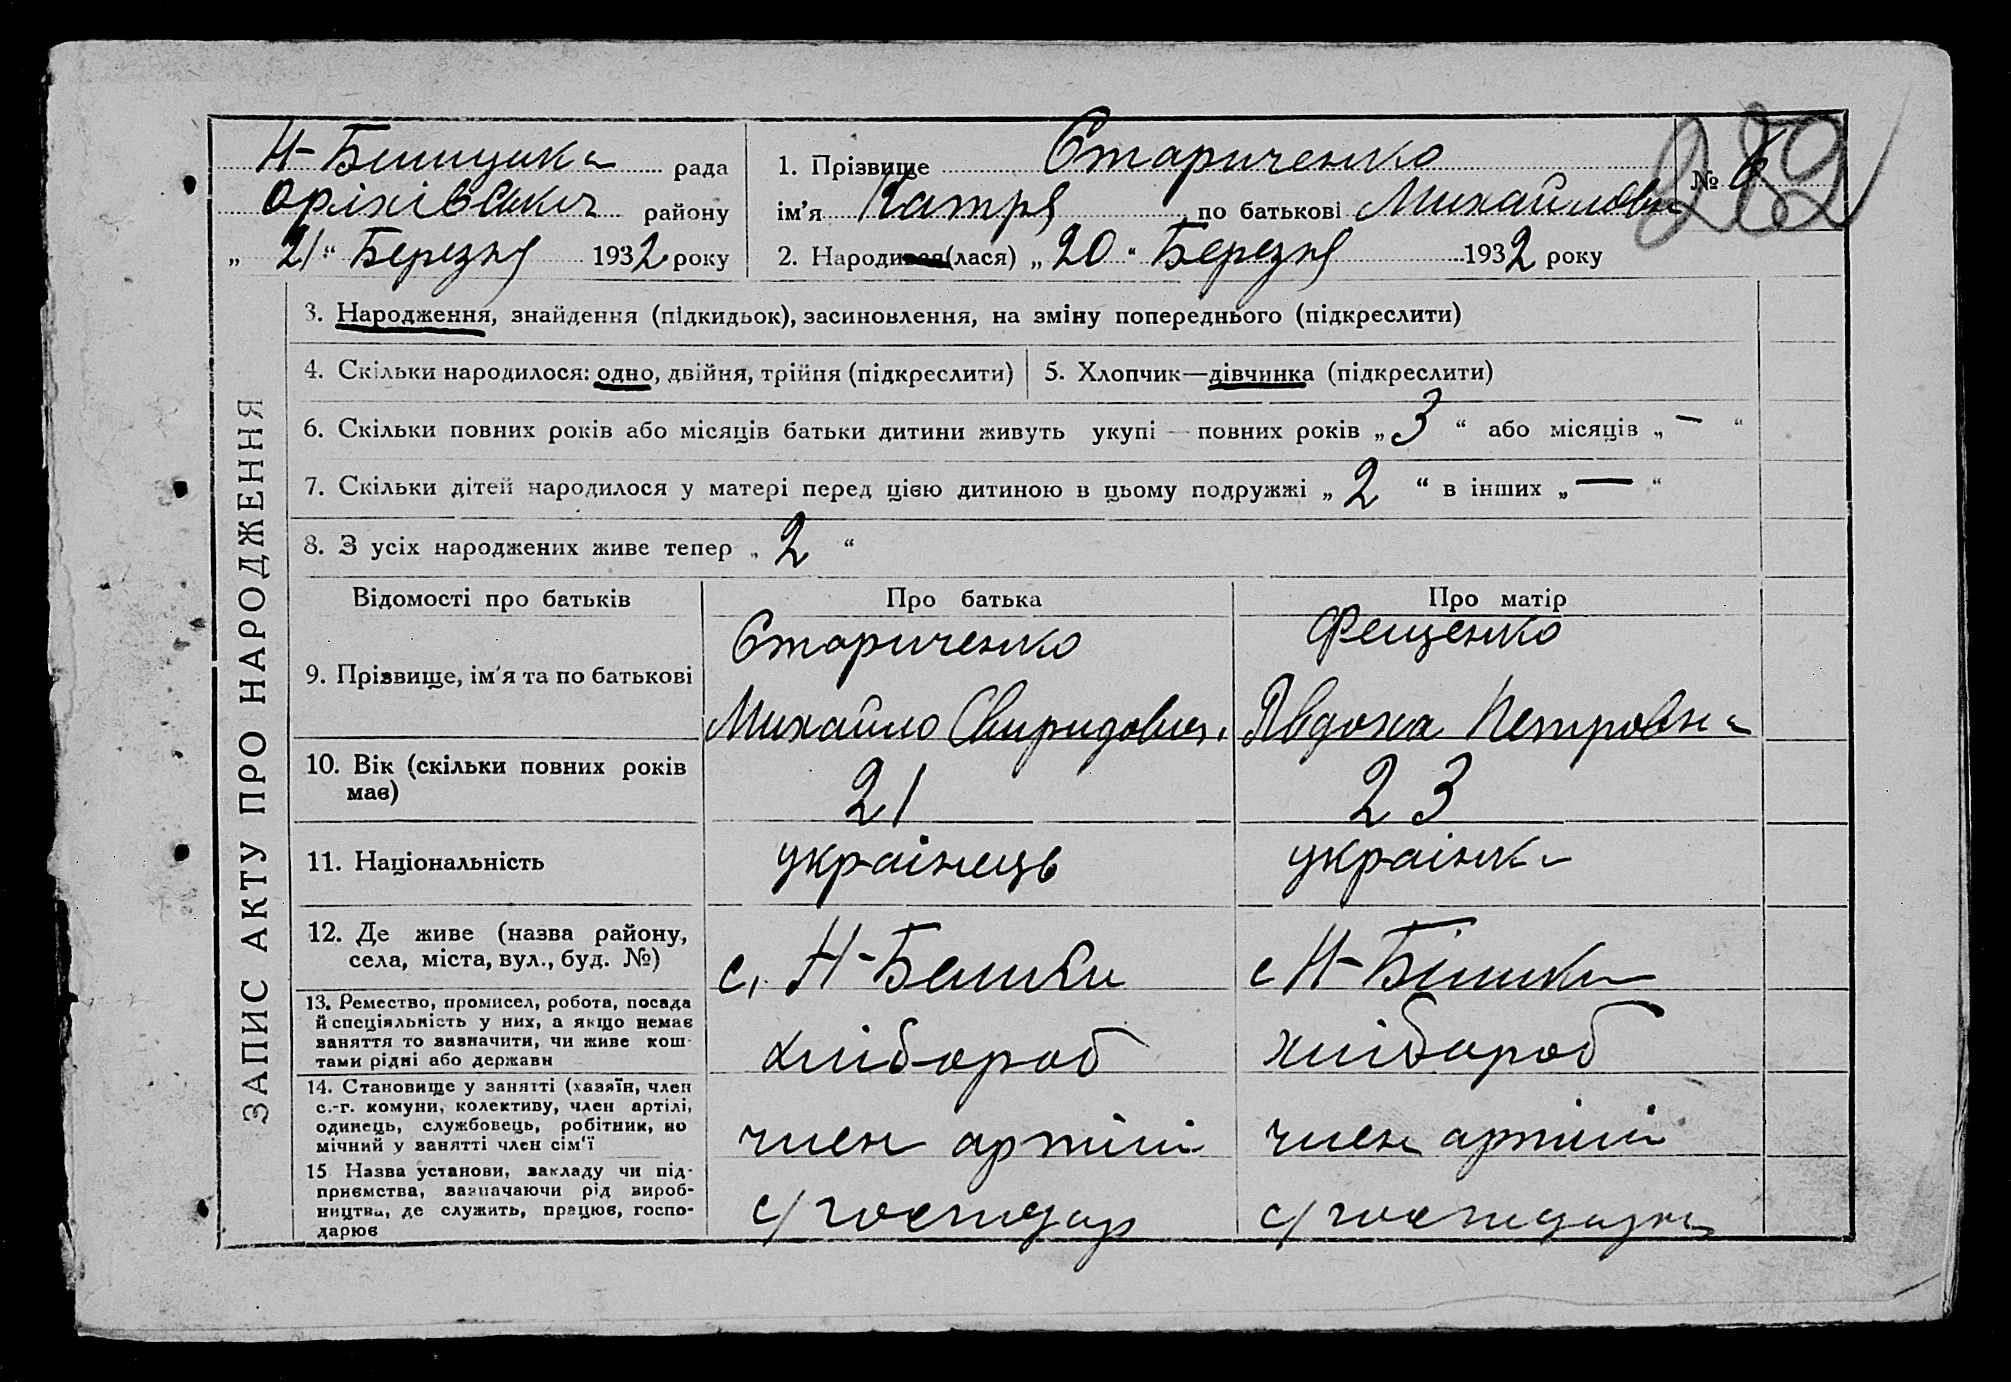 Н-Бішицька рада
Оріхівський району
„ 21 “ Березня 1932 року
1. Прізвище Стариченко
№ 6
282
ім’я Катря по батькові Михайловн
2. Народився(лася) „ 20 “ Березня 1932 року
ЗАПИС АКТУ ПРО НАРОДЖЕННЯ
3. Народження, знайдення (підкидьок), засиновлення, на зміну попереднього (підкреслити)
4. Скільки народилося: одно, двійня, трійня (підкреслити)
5. Хлопчик—дівчинка (підкреслити)
6. Скільки повних років або місяців батьки дитини живуть укупі — повних років „ 3 “ або місяців „ — “
7. Скільки дітей народилося у матері перед цією дитиною в цьому подружжі „ 2 “ в інших „ — “
8. З усіх народжених живе тепер „ 2 “
Відомості про батьків
Про батька
Про матір
9. Прізвище, ім’я та по батькові
Стариченко
Михайло Свиридович
Фещенко
Явдоха Петровна
10. Вік (скільки повних років
має)
21
23
11. Національність
українець
українка
12. Де живе (назва району,
села, міста, вул., буд. №)
с. Н-Бешки
с Н-Бішки
13. Ремество, промисел, робота, посада
й специяльність у них, а якщо немає
заняття то зазначити, чи живе кош-
тами рідні або держави
хлібороб
хлібороб
14. Становище у занятті (хазяїн, член
с.-г. комуни, колективу, член артілі,
одинець, службовець, робітник, по
мічний у занятті член сім’ї
член артілі
член артілі
15 Назва установи, закладу чи під-
приємства, зазначаючи рід вироб-
ництва, де служить, працює, госпо-
дарює
с/господар
с/господарка